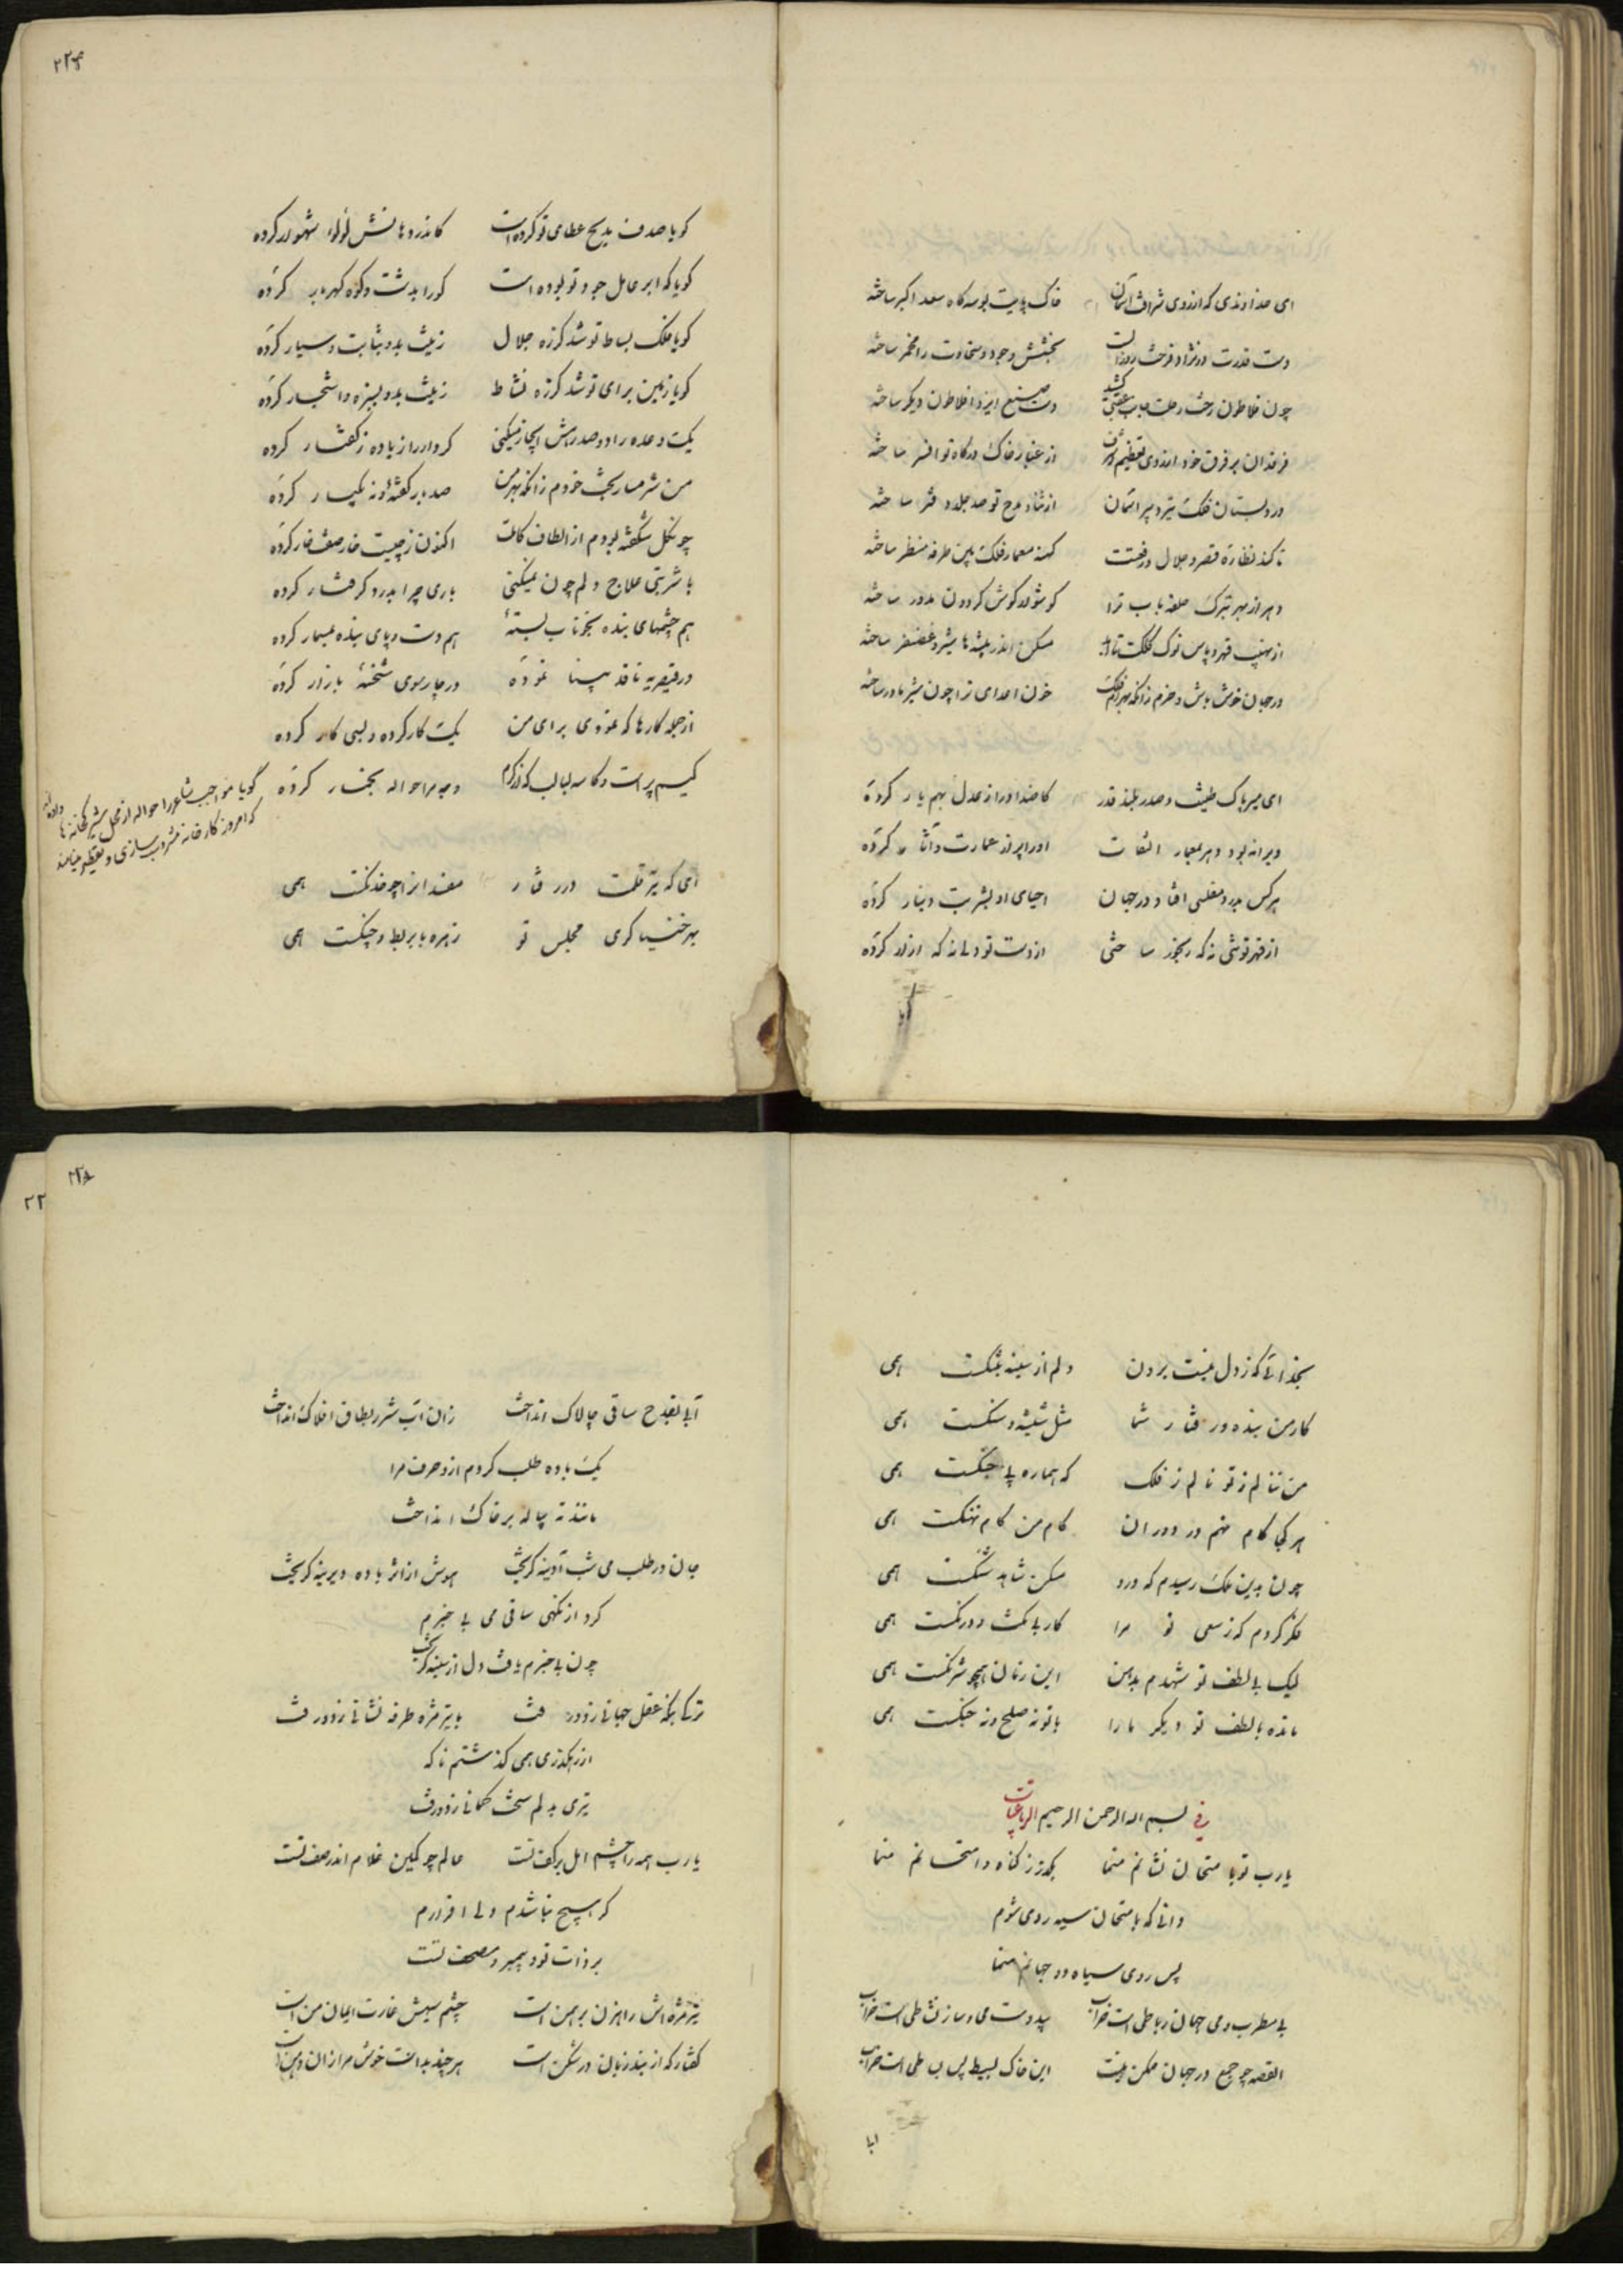 ای خداوندی که از روی شرافت آسمان خاک پایت بوسه گاه سعد اکبر ساخته
بخشش وجود و سخاوت را مخمر ساخته
چون فلاطون رخت رحلت دست صنع ایزد افلاطون دیگر ساخته
فرقدان بر فرق خود از روی تعظیم از غبار خاک درگاه تو افسر ساخته
در دبستان فلک تیر دبیر آسمان از ثنا و مدح تو صد جلد دفتر ساخته
تا کند نظاره قصر و جلال و رفعتت کهنه معمار فلک این طرفه منظر ساخته
دهر از بهر تبرک حلقه باب ترا گوشوار گوش گردون مدور ساخته
از نهیب قهر و پاس نوک کلکت مسکن اندر بیشه ها شیر و غضنفر ساخته
در جهان خوش باش و خرم زانکه بهرام فلک خون اعدای ترا چون شیر مادر ساخته
ای میر پاک طینت و صدر بلند قدر کاضداد را ز عدل بهم یار کرده
ویرانه بود دهر بمعمار التفات او را پر از عمارت و آثار کرده
هر کس بدرد مفلسی افتاد در جهان احیای او بشربت دینار کرده
از قهر تو تنی نه که رنجور ساختی از دست تو دلی نه که آزار کرده
گویا صدف مدیح عطای تو کرده است کاندر دهانش لؤلؤ شهوار کرده
گویا که ابر حامل جود تو بوده است کو را بدشت و کوه گهربار کرده
گویا فلک بساط تو شد کز ره جلال زینت بدو بثابت و سیار کرده
گویا زمین برای تو شد کز ره نشاط زینت بدو بسبزه و اشجار کرده
یک وعده را دو صد رهش انجاز میکنی کردار را زیاده ز گفتار کرده
من شرمسار بخت خودم زانکه بهر من صد بار گفته و نه یکبار کرده
چون گل شکفته بودم از الطاف کاملت اکنون ز چیست خار صفت خار کرده
با شربتی علاج دلم چون نمیکنی باری چرا بدرد گرفتار کرده
هم چشمهای بنده بخوناب بسته هم دست و پای بنده بمسمار کرده
در قیصریه ناقد بینا نموده در چارسوی شحنه بازار کرده
از جمله کارها که نمودی برای من یک کار کرده و بسی کار کرده
کیسم پر است و کاسه لبالب که از کرم وجه مرا حواله بخمار کرده
گویا مواجب شاعر را حواله از محل شیرکخانه ها داده اند
که امروز کارخانه مشروب سازی و تقطیر مینامند
ای که تیر قلمت در رفتار مفسدانرا چو خدنگست همی
بهر خنیاگری مجلس تو زهره با بربط و چنگست همی
بخدائی که ز دل نیست برون دلم از سینه بتنگست همی
کار من بنده ورفتار شما مثل شیشه و سنگست همی
من ننالم ز تو نالم ز فلک که هماره پی جنگست همی
هر کجا گام نهم در دوران گام من کام نهنگست همی
چون بدین ملک رسیدم که درو مسکن شاهد شنگست همی
فکر کردم که ز سعی تو مرا کار بی مکث و درنگست همی
لیک بی لطف تو شهدم بدهن این زمان همچو شرنگست همی
مانده بالطف تو دیگر ما را با تو نه صلح و نه جنگست همی
بسم الله الرحمن الرحیم فی الرباعیات
یا رب تو با متحان نشانم منما بگذر ز گناه و امتحانم منما
دانی که بامتحان سیه روی شوم
پس روی سیاه در جهانم منما
بی مطرب و می جهان رباطی است خراب بیدوست می و ساز نشاطی است خراب
القصه چو جمع در جهان ممکن نیست این خاک بسیط پس بساطی است خراب
آبی بقدح ساقی چالاک انداخت زان آب شرر بطاق افلاک انداخت
یک باده طلب کردم از و حرف مرا
مانند ته پیاله بر خاک انداخت
جان در طلب می شب آدینه گریخت هوش از اثر باده دیرینه گریخت
کرد از نگهی ساقی می بی خبرم
چون بی خبرم یافت دل از سینه گریخت
ترکا بنگه عقل جهانی زد و رفت با تیر مژه طرفه نشانی زد و رفت
از رهگذری همی گذشتم ناگه
تیری بدلم سخت کمانی زد و رفت
یا رب همه را چشم امل بر کف تست عالم چو کمین غلام اندر صف تست
گر هیچ نباشدم ولی اقرارم
بر ذات تو و پیمبر و مصحف تست
تیر مژه اش راهزن بر همن است چشم سیهش غارت ایمان من است
گفتار که از بند زبان در شکن است هر چند بد است خوش مرا زان دهن است